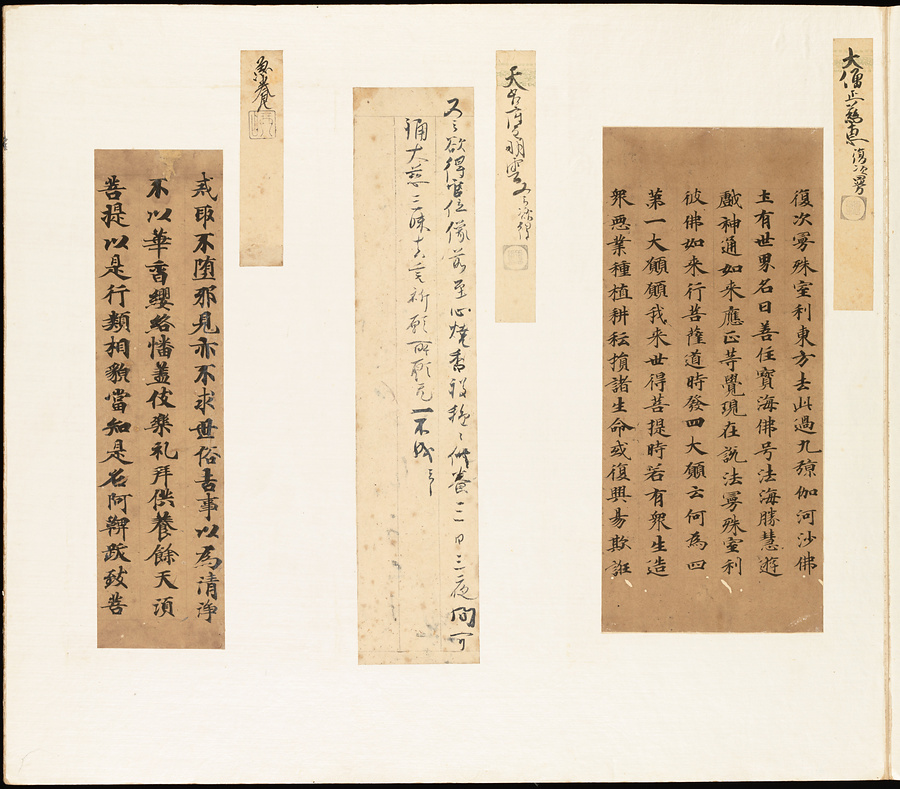 大僧正慈恵 復次曼
復次曼殊室利東方去此過九殑伽河沙佛
土有世界名曰善住寶海佛号法海勝慧遊
戲神通如来應正等覺現在説法曼殊室利
彼佛如来行菩薩道時發四大願云何為四
第一大願願我来世得菩提時若有衆生造
衆悪業種植耕耘損諸生命或復興易欺誑
天台座主明雲 又云欲得
又云欲得官位僕若至心燒香
三日三夜間可
誦大慈三昧 祈願所願无一不成云〻
戒取不堕邪見亦不求世俗吉事以為清淨
不以華香纓絡幡蓋伎樂礼拜供養餘天須
菩提以是行類相貌當知是名阿鞞跋致菩